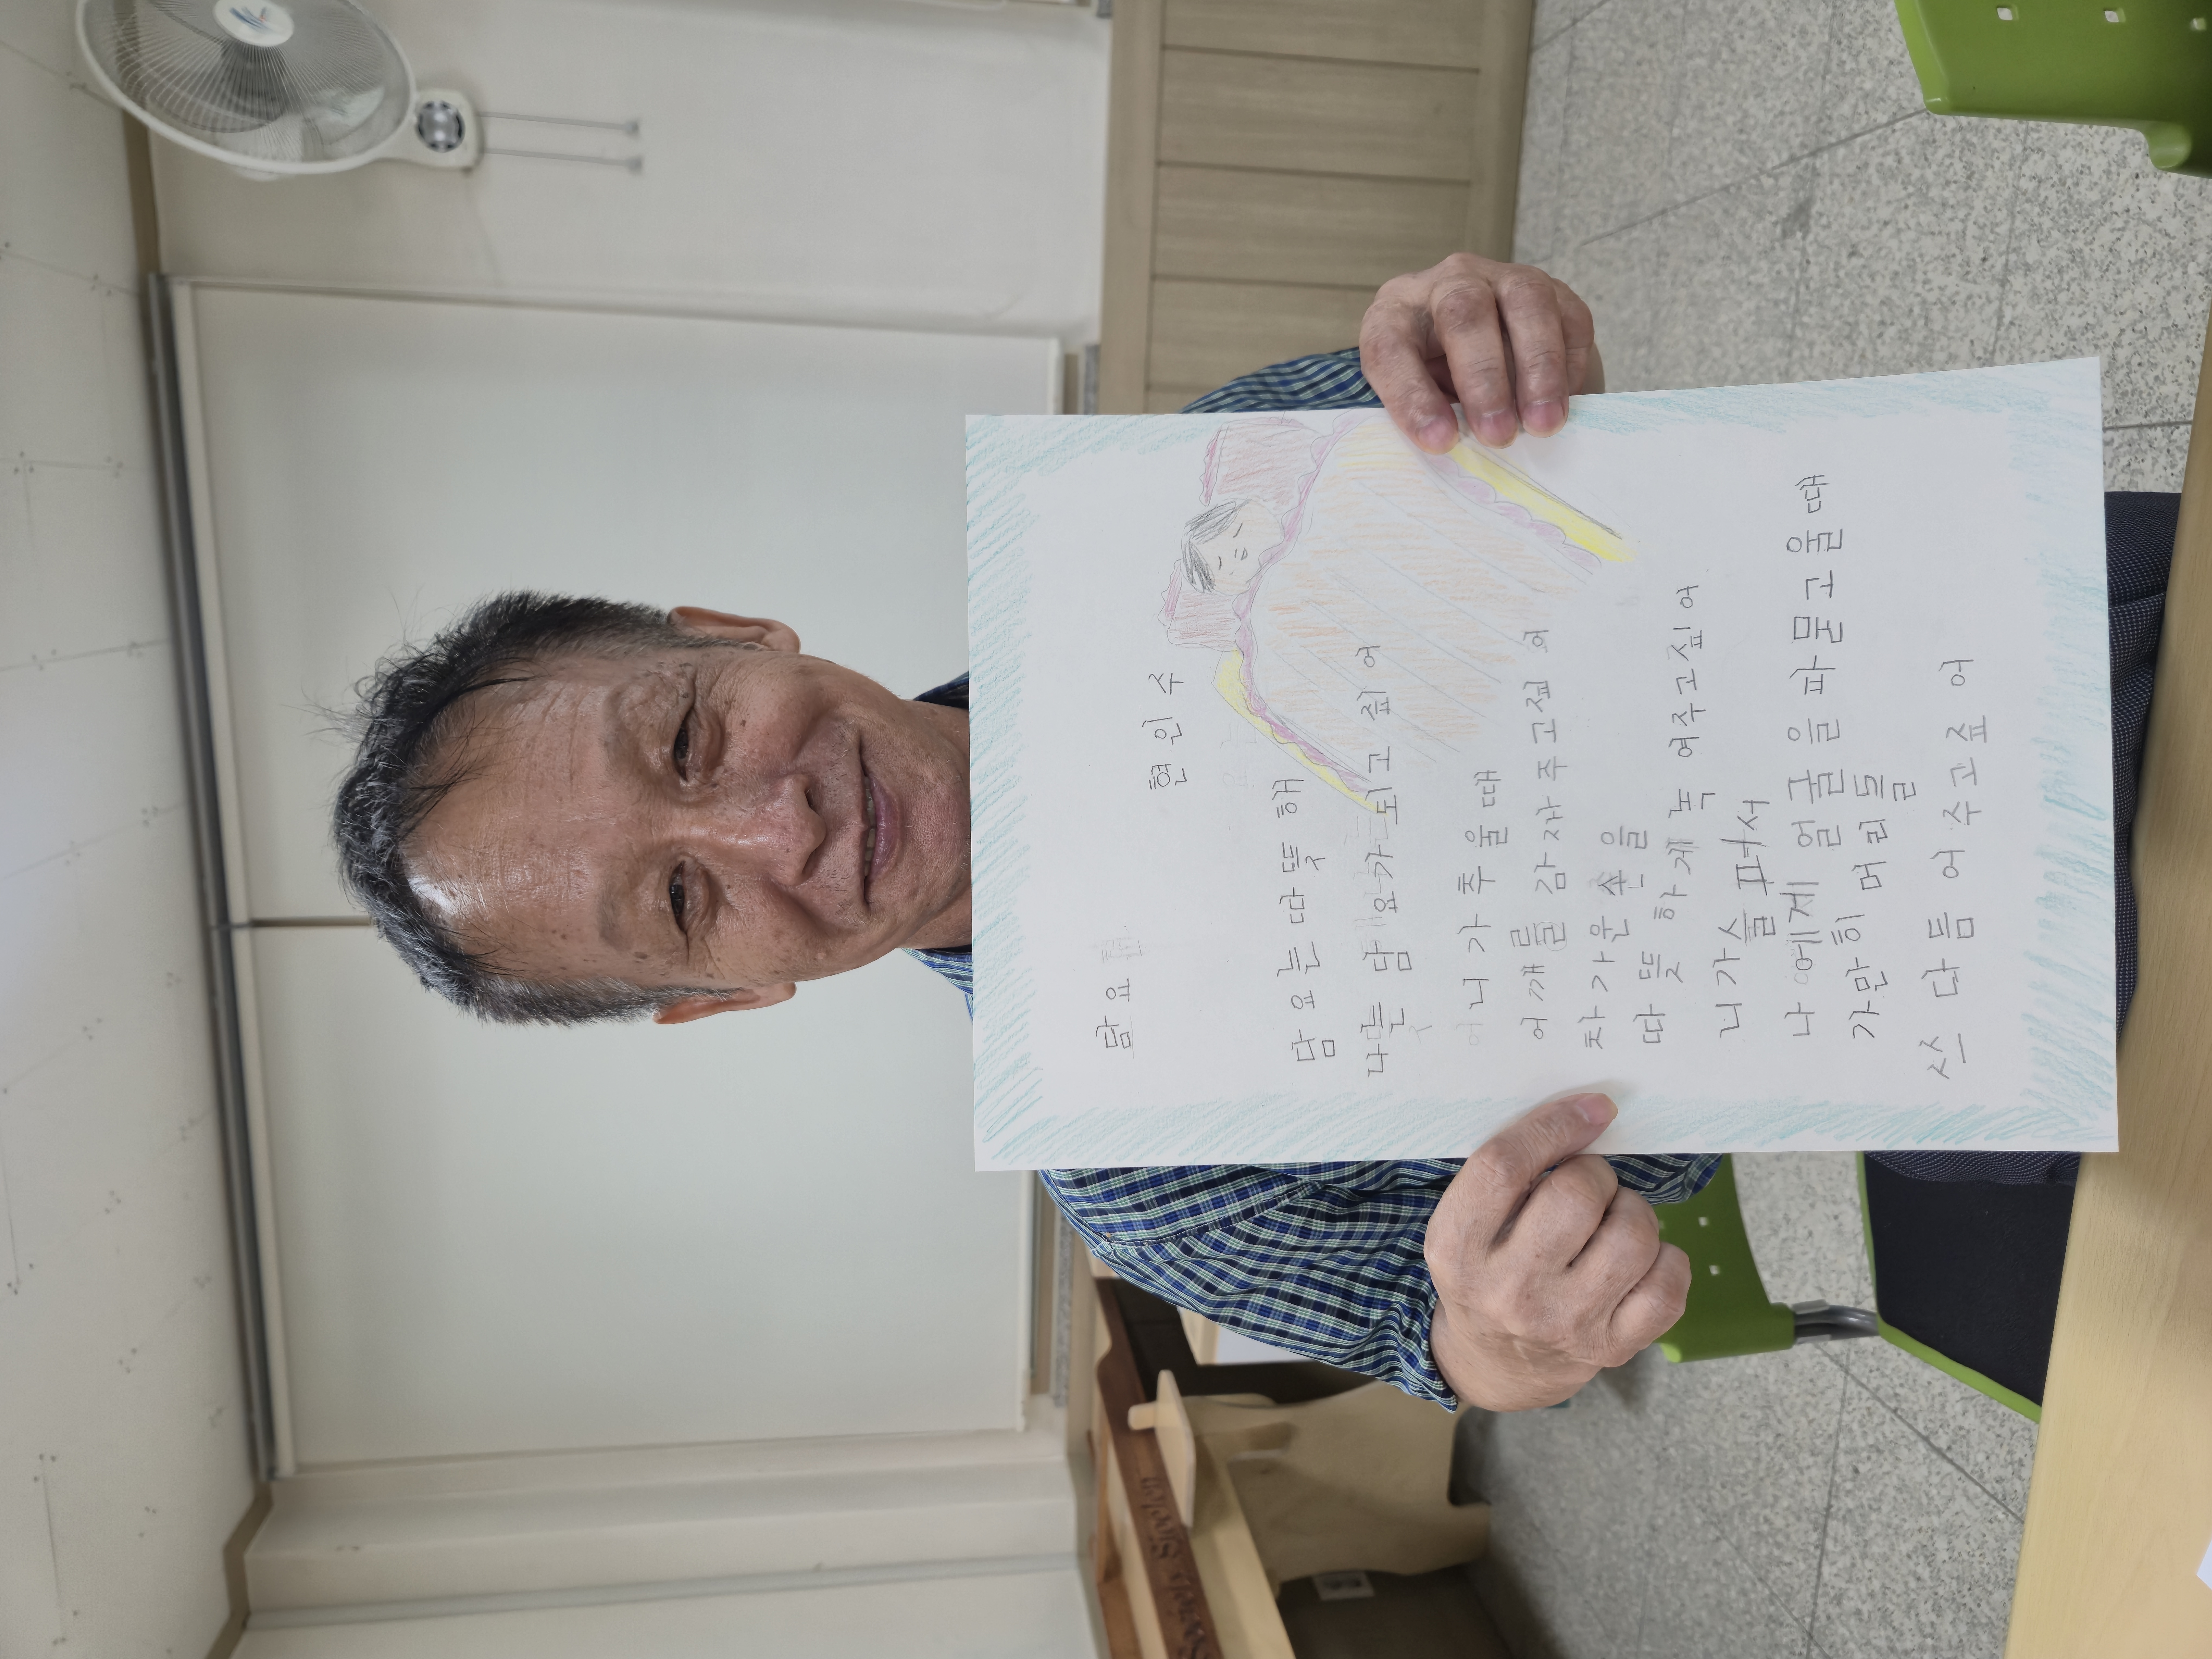 담요
현인수
담요는 따뜻해
나는 담요가 되고 싶어
니가 추울 때
어깨를 감자주고싶어
차가운 손을
따뜻하게 녹여주고싶어
니가 슬퍼서
나에게 얼굴을 파묻고 울 때
가만히 머리를
쓰다듬어 주고싶어